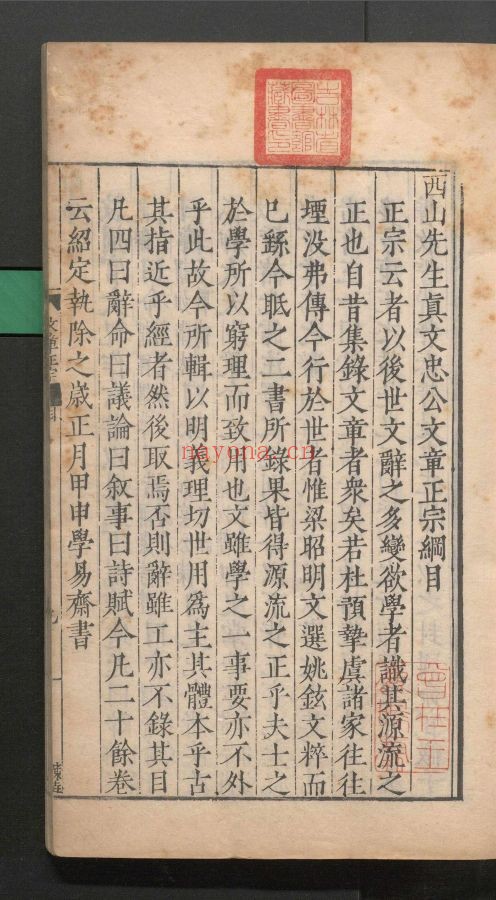 西山先生眞文忠公文章正宗綱目
正宗云者以後世文辭之多變欲學者識其源流之
正也自昔集錄文章者衆矣若杜預摯虞諸家往往
堙没弗傳今行於世者惟梁昭明文選姚鉉文粹而
已繇今眂之二書所錄果皆得源流之正乎夫士之
於學所以窮理而致用也文雖學之一事要亦不外
乎此故今所輯以明義理切世用爲主其體本乎古
其指近乎經者然後取焉否則辭雖工亦不錄其目
凡四曰辭命曰議論曰敘事曰詩賦今凡二十餘卷
云紹定執除之歲正月甲申學易齋書
吉林省圖書館藏書印
nayona.cn